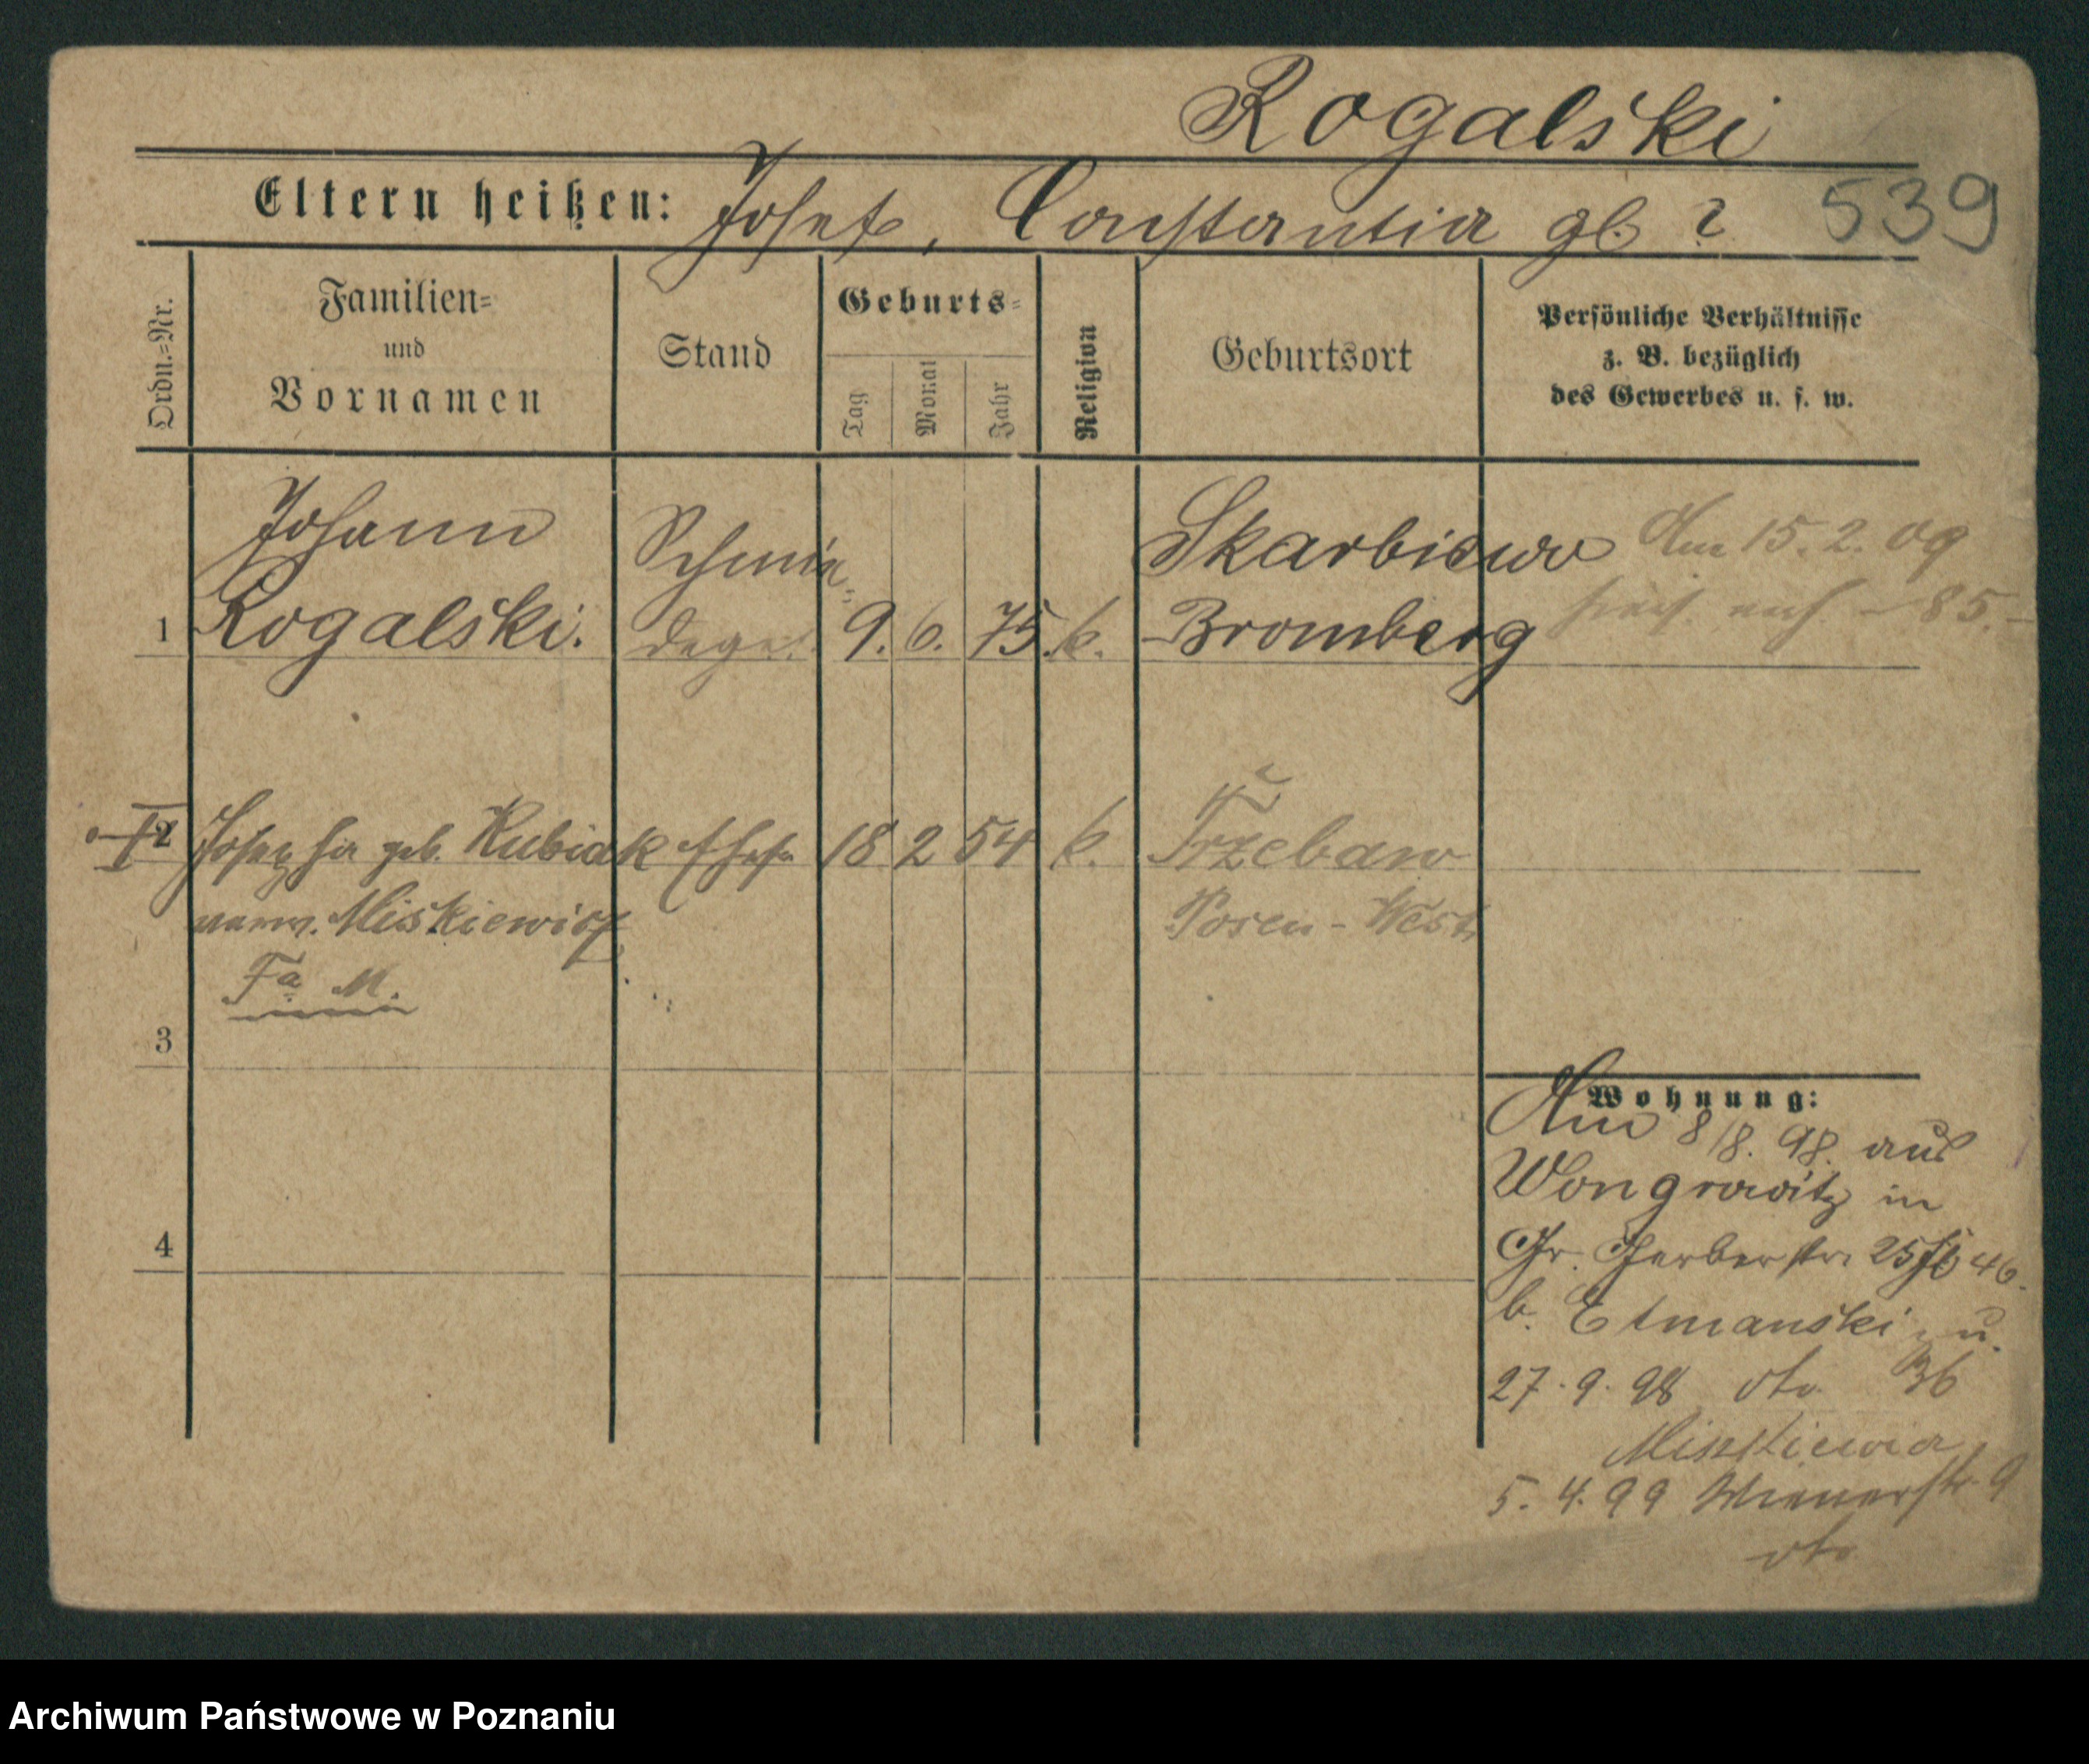 Rogalski
Eltern heißen: Josef, Constantia gb. ? 539
Ordn.=Nr.
Familien=
und
Vornamen
Stand
Geburts=
Tag
Monat
Jahr
Religion
Geburtsort
Persönliche Verhältnisse
z. B. bezüglich
des Gewerbes u. s. w.
Johann Schmie= Skarbiewo Am 15.2.09
1 Rogalski. dege. 9. 6. 75. k. Bromberg 85.-
2 Josepha geb. Kubiak Ehefr. 18 2 54 k. Trzebaw
verw. Miskiewicz Posen - West
Fa M.
3
Wohnung:
Am 8/8. 98. aus
Wongrowitz in
4
Gr. Gerberstr. 25 46.
b. Etmanski, u.
27.9.98 dto. 36
5.4.99 Wienerstr. 9
dto
Archiwum Państwowe w Poznaniu